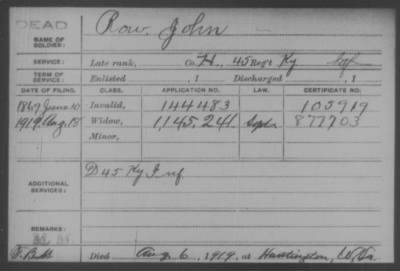 DEAD
NAME OF SOLDIER: Row, John
SERVICE: Late rank, Co. H, 45 Reg't Ky
TERM OF SERVICE: Enlisted , 1 Discharged , 1
DATE OF FILING. CLASS. APPLICATION NO. LAW. CERTIFICATE NO.
1869 June 10 Invalid, 144483 105919
1919, Aug. 18 Widow, 1,145,241 877703
Minor,
ADDITIONAL SERVICES: D 45 Ky Inf
REMARKS:
Died Aug 6, 1919, at Huntington, W.Va.